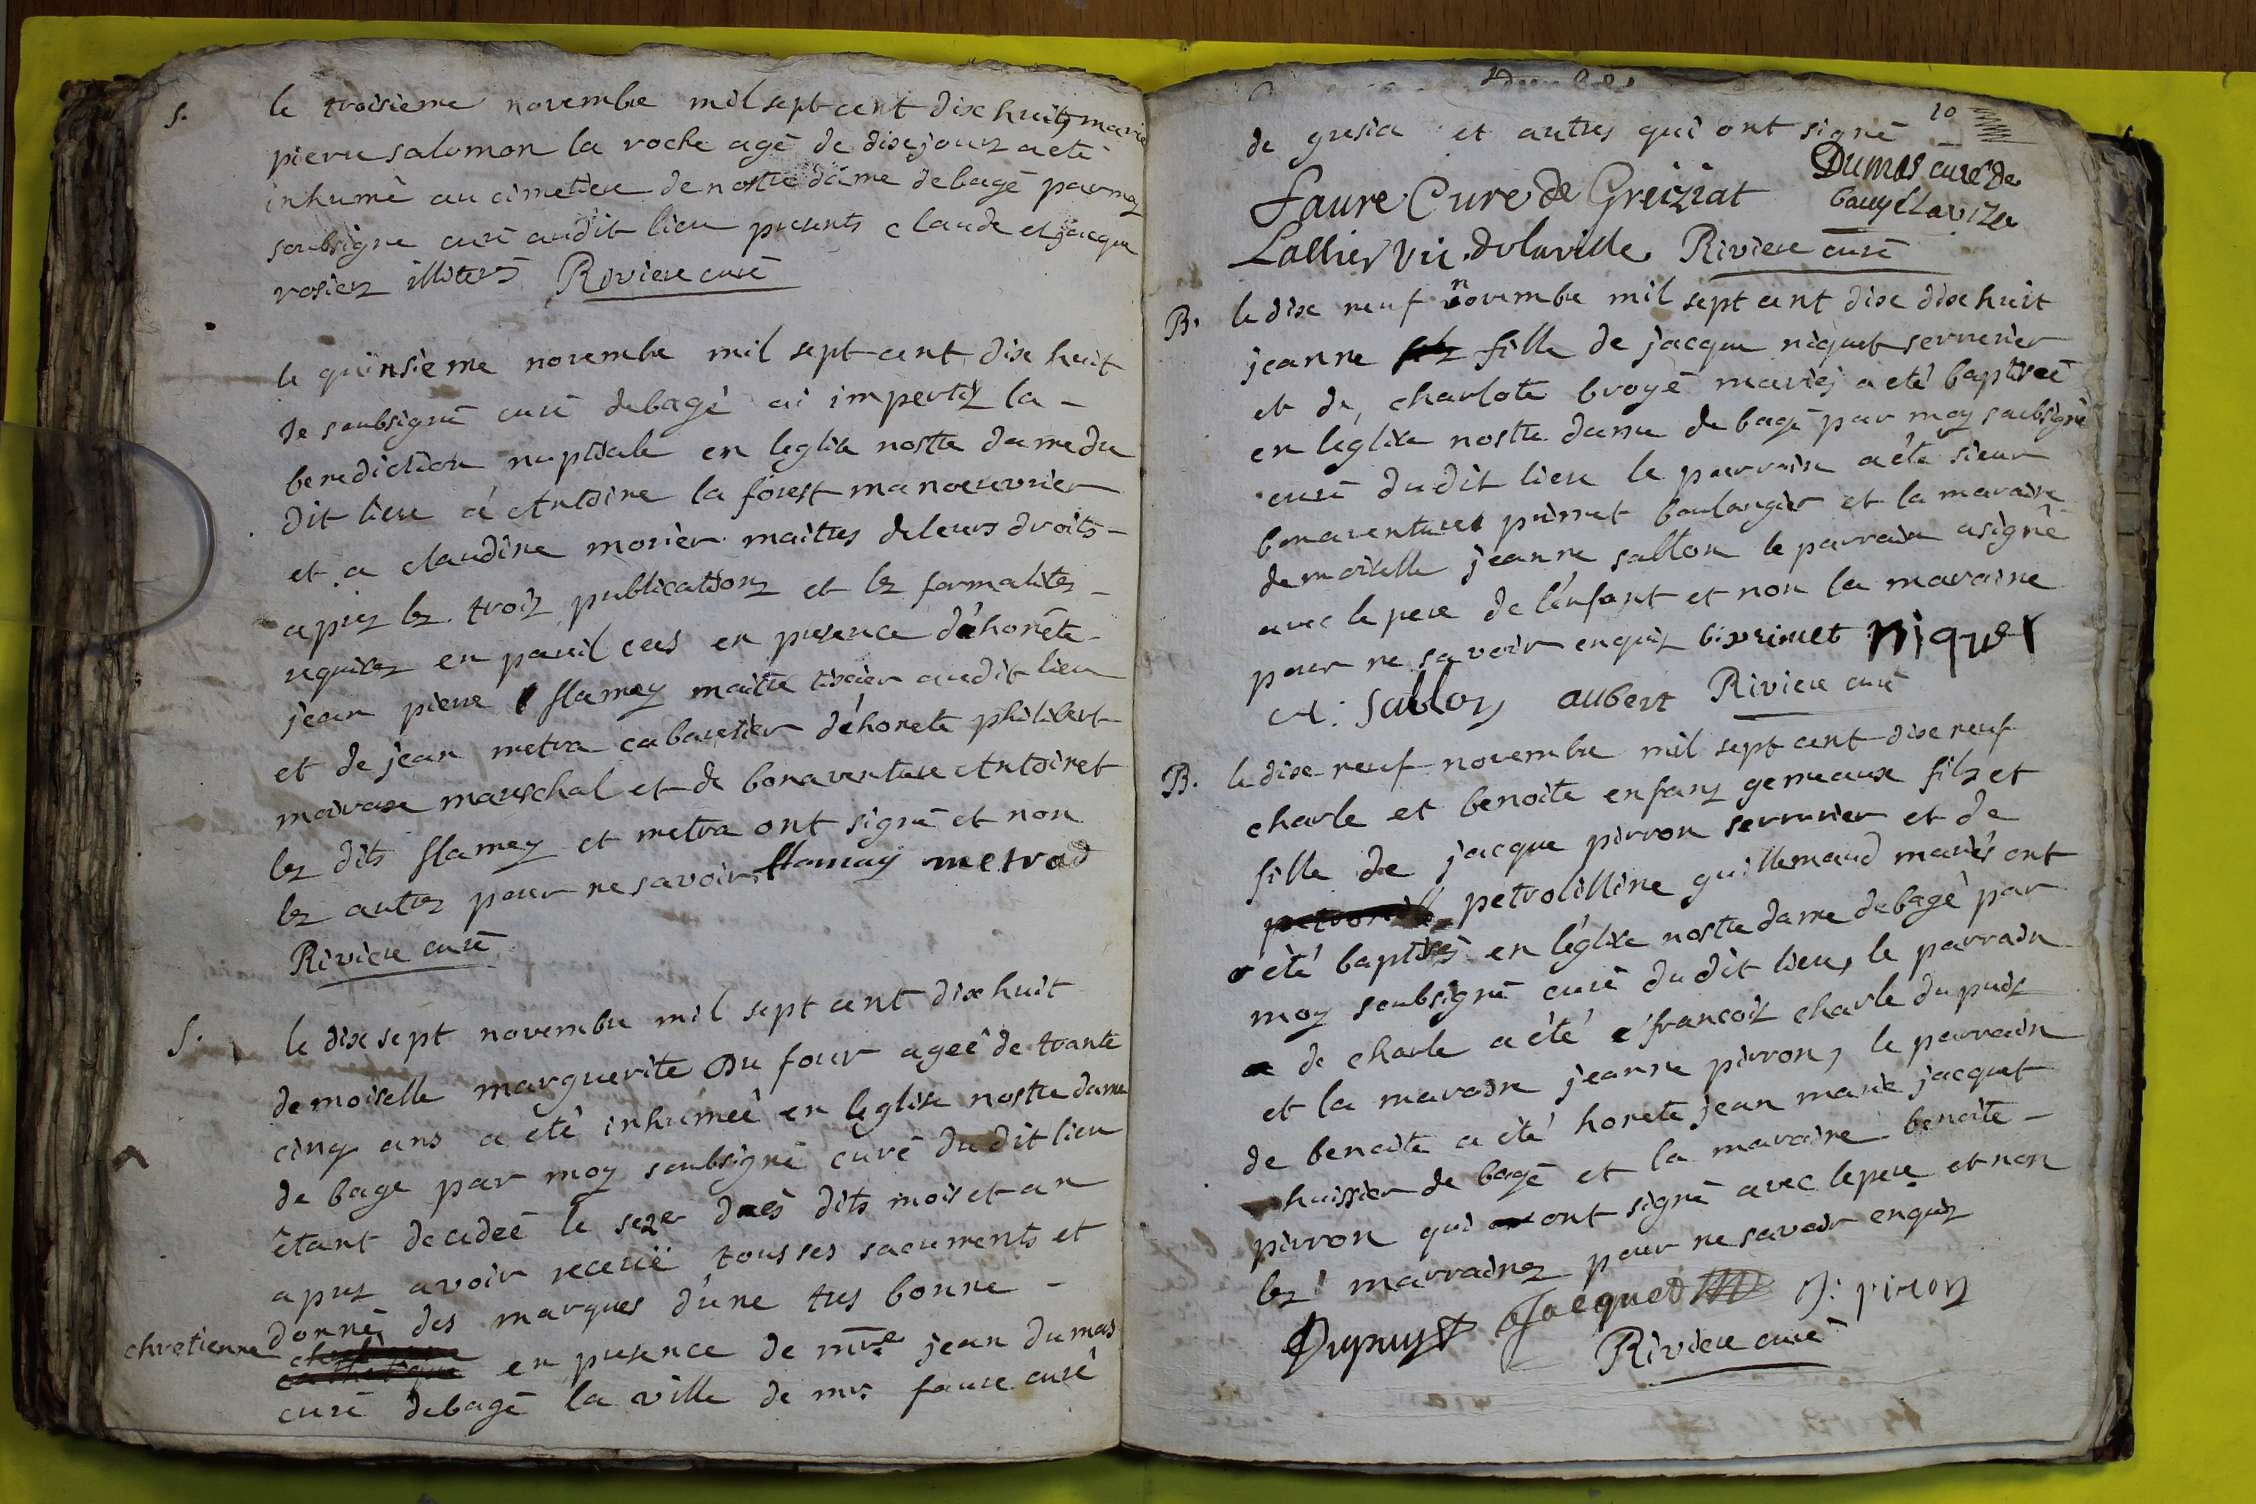 S. le troisieme novembre mil sept cent dix huit, marie
pierre salomon la roche agé de dixe jours a eté
inhumé au cimetiere de nostre dame de bagé par moy
soubsigne curé audit lieu presents claude et jacque
rosier illiterés Riviere curé
le quinsieme novembre mil sept cent dix huit
Je soubsigné curé de bagé ai imperty la -
benediction nuptiale en leglise nostre dame du
dit lieu à Antoine la forest manoeuvrier
et a claudine morier maitres de leurs droits -
aprez lez troiz publicationz et lez formalitez -
requisez en pareil cas en presence d'honete
jean pierre flamey maitre tixier audit lieu
et de jean metra cabaretier d'honete philibert
moiroux mareschal et de bonaventure Antoinet
lez dits flamey et metra ont signé et non
lez autrez pour ne savoir. flamay metrad
Riviere curé
S. le dix sept novembre mil sept cent dix huit
demoiselle marguerite Du four ageé de trante
cinq ans a eté inhumeé en leglise nostre dame
de bage par moy soubsigné curé du dit lieu
étant decedeé le seze dès dits mois et an
aprez avoir receüe tous ses sacrements et
donné des marques d'une tres bonne -
chretienne en presence de mre jean dumas
curé de bagé la ville de mr. faure curé
10
de gresia et autres qui ont signé
Faure Curé de Greiziat Dumas curé de
baugé laville
Lallier vic. de laville Riviere curé
B. le dix neuf novembre mil sept cent dix dix huit
jeanne fille de jacque niquet serrurier
et de charlote broyé mariéj a eté baptiseé
en leglise nostre dame de bagé par moy soubsigné
curé du dit lieu le parrain a été sieur
bonaventure primet boulangier et la maraine
demoiselle jeanne sallon le parrain a signé
avec le pere de l'enfant et non la maraine
pour ne savoir enquiz b: primet niquet
sallon aubert Riviere curé
B. le dixe neuf novembre mil sept cent dixe neuf
charle et benoite enfanz gemeaux filz et
fille de jacque pirron serrurier et de
petrolilline guillemaud mariés ont
été baptisés en léglise nostre dame de bagé par
moy soubsigné curé du dit lieu, le parrain
de charle a été francoiz charle dupuis
et la maraine jeanne pirron, le parrain
de benoite a été honete jean marie jacquet
huissier de bagé et la maraine benoite -
pirron qui ont signé avec le pere et non
lez marrainez pour ne savoir enquiz
Dupuys Jacquet J: piron
Riviere curé